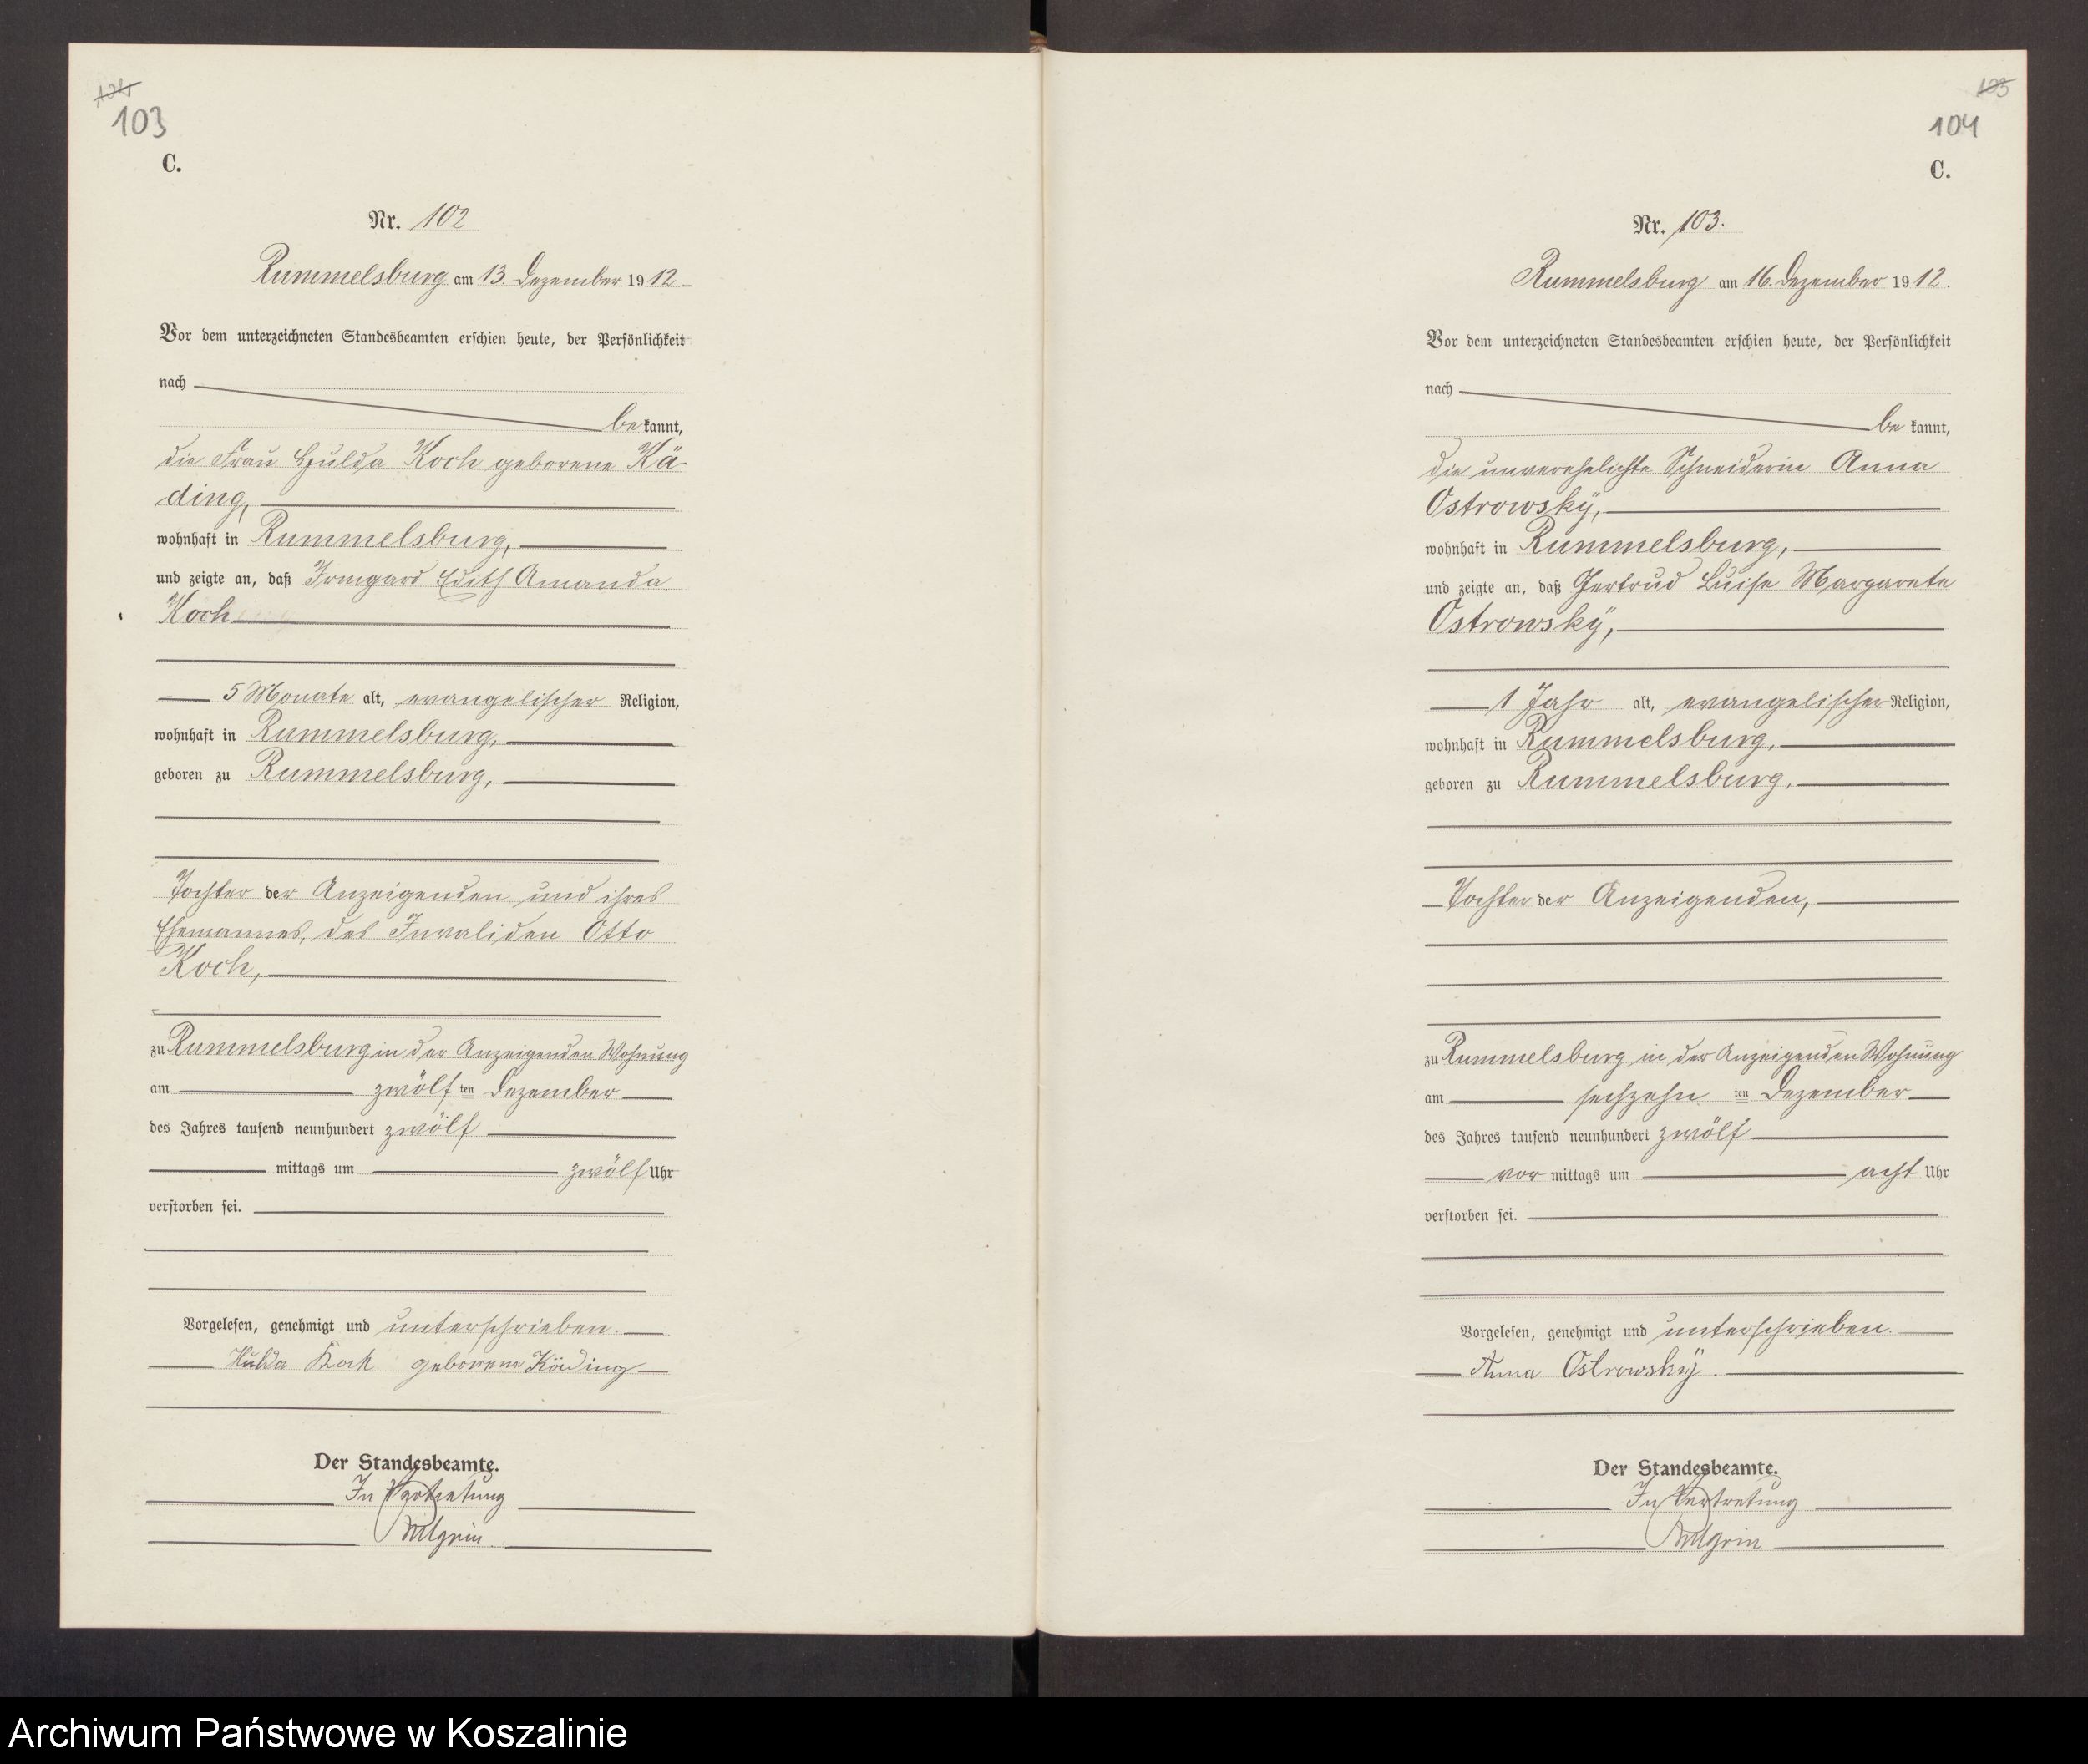 103
C.
Nr. 102
Rummelsburg am 13. Dezember 1912
Vor dem unterzeichneten Standesbeamten erschien heute, der Persönlichkeit
nach
bekannt,
die Frau Hulda Koch geborene Kä-
ding,
wohnhaft in Rummelsburg,
und zeigte an, daß Irmgard Edith Amanda
Koch
5 Monate alt, evangelischer Religion,
wohnhaft in Rummelsburg,
geboren zu Rummelsburg,
Tochter der Anzeigenden und ihres
Ehemannes, des Invaliden Otto
Koch,
zu Rummelsburg in der Anzeigenden Wohnung
am zwölften Dezember
des Jahres tausend neunhundert zwölf
mittags um zwölf Uhr
verstorben sei.
Vorgelesen, genehmigt und unterschrieben.
Hulda Koch geborene Käding
Der Standesbeamte.
In Vertretung
104
C.
Nr. 103.
Rummelsburg am 16. Dezember 1912.
Vor dem unterzeichneten Standesbeamten erschien heute, der Persönlichkeit
nach
bekannt,
die unverehelichte Schneiderin Anna
Ostrowsky,
wohnhaft in Rummelsburg,
und zeigte an, daß Gertrud Luise Margarete
Ostrowsky,
1 Jahr alt, evangelischer Religion,
wohnhaft in Rummelsburg,
geboren zu Rummelsburg,
Tochter der Anzeigenden,
zu Rummelsburg in der Anzeigenden Wohnung
am sechzehnten Dezember
des Jahres tausend neunhundert zwölf
vormittags um acht Uhr
verstorben sei.
Vorgelesen, genehmigt und unterschrieben.
Anna Ostrowsky.
Der Standesbeamte.
In Vertretung
Archiwum Państwowe w Koszalinie